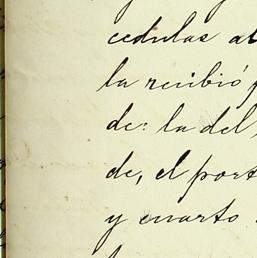 cedulas at
la recibió p
de: la del
de, el port
y cuarto